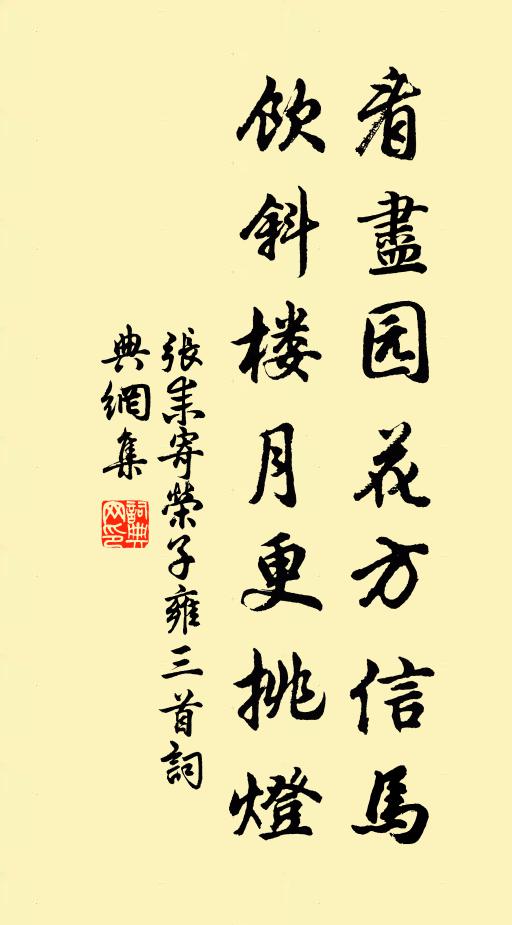 看盡园花方信馬
飲斜楼月更挑燈
張耒寄榮子雍三首詞
典網集
詞典
网印